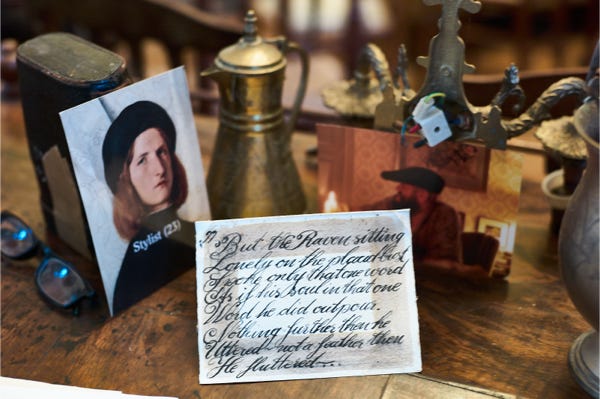 Stylist (23)
"But the Raven sitting
Lonely on the placid bust
Spoke only that one word
As if his soul in that one
Word he did outpour.
Nothing further then he
Uttered - not a feather then
He fluttered...